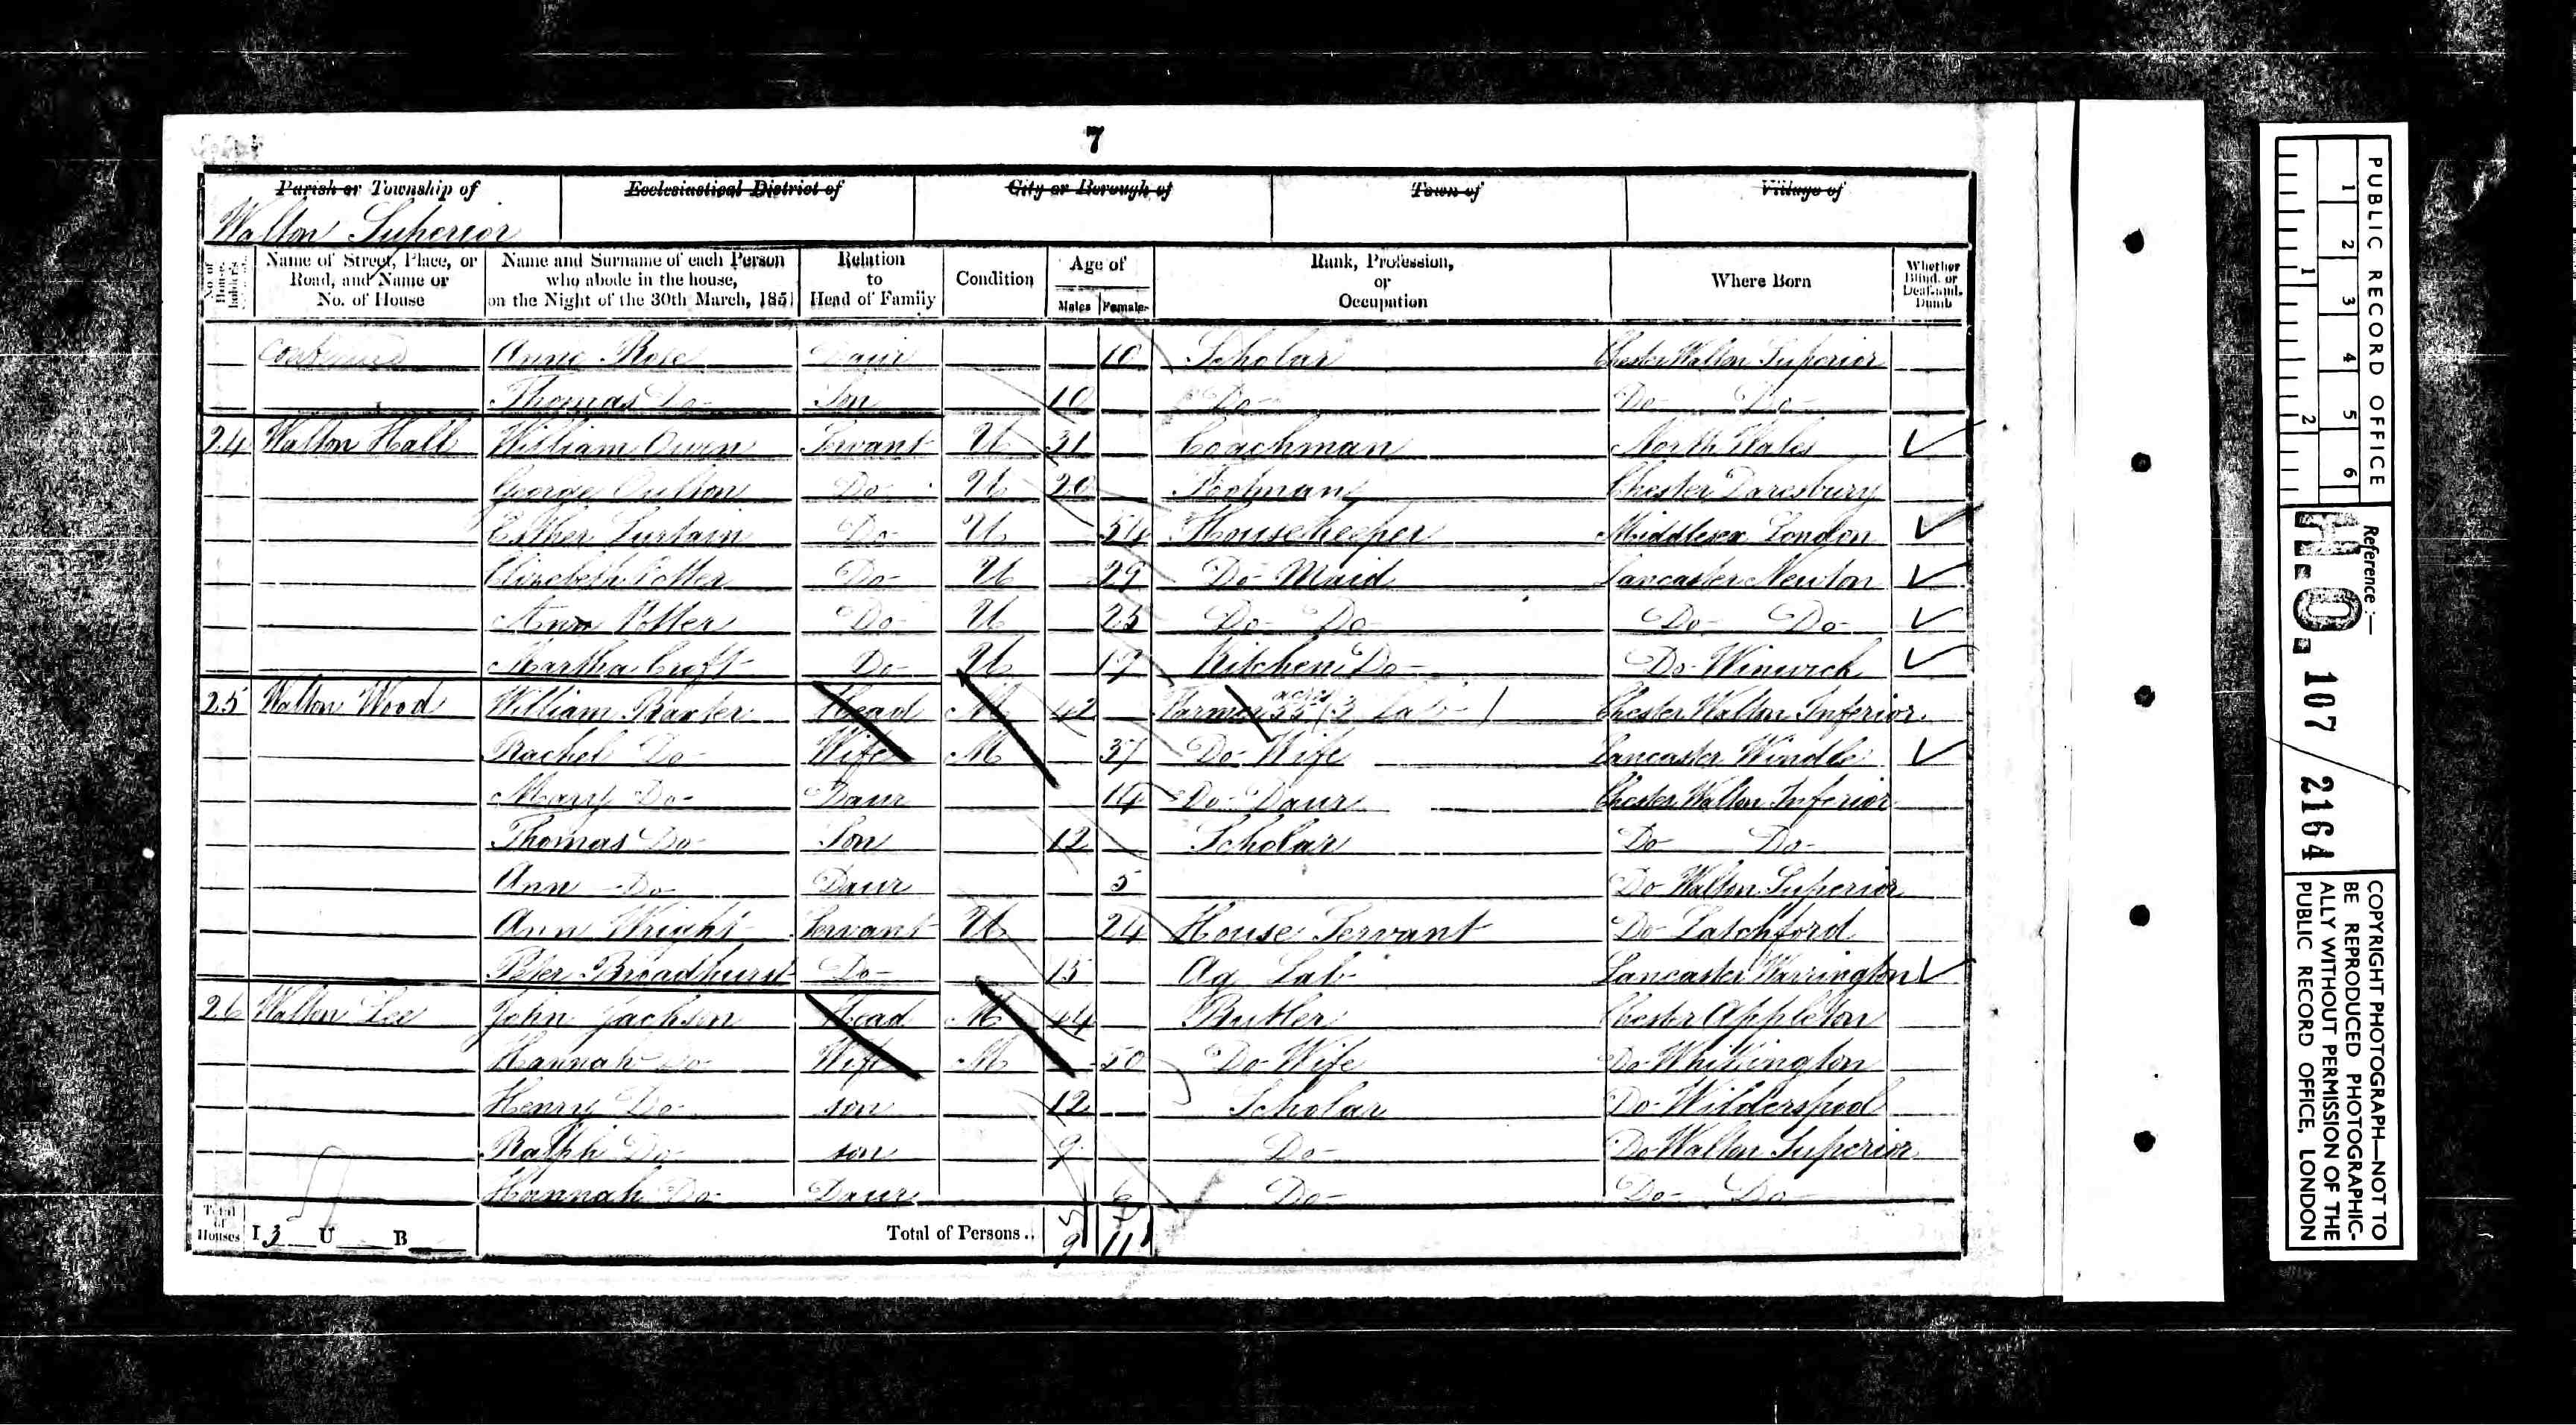 7
Parish or Township of Ecclesiastical District of City or Borough of Town of Village of
Walton Superior
No. of House Name of Street, Place, or Road, and Name or No. of House Name and Surname of each Person who abode in the house, on the Night of the 30th March, 1851 Relation to Head of Family Condition Age of Males Females Rank, Profession, or Occupation Where Born Whether Blind, or Deaf-and-Dumb
continued Annie Rose Daur 10 Scholar Chester Walton Superior
Thomas Do Son 10 Do Do Do
24 Walton Hall William Owen Servant U 31 Coachman North Wales
George Oulton Do U 20 Footman Chester Daresbury
Esther Do U 54 Housekeeper Middlesex London
Elizabeth Potter Do U 29 Do Maid Lancaster Newton
Ann Potter Do U 25 Do Do Do Do
Martha Croft Do U 19 Kitchen Do Do Winwick
25 Walton Wood William Baxter Head M 42 Farmer 55 acres (3 Lab) Chester Walton Inferior
Rachel Do Wife M 37 Do Wife Lancaster Windle
Mary Do Daur 14 Do Daur Chester Walton Inferior
Thomas Do Son 12 Scholar Do Do
Ann Do Daur 5 Do Walton Superior
Ann Wright Servant U 24 House Servant Do Latchford
Peter Broadhurst Do 15 Ag Lab Lancaster Warrington
26 Walton Lee John Jackson Head M 44 Butler Chester Appleton
Hannah Do Wife M 50 Do Wife Do Whittington
Henry Do son 12 Scholar Do Wilderspool
Ralph Do son 9 Do Do Walton Superior
Hannah Do Daur 6 Do Do Do
Total of Houses I 3 U B Total of Persons.. 9 11
PUBLIC RECORD OFFICE
1 2 3 4 5 6
1 2
Reference:-
H.O. 107 / 2164
COPYRIGHT PHOTOGRAPH—NOT TO
BE REPRODUCED PHOTOGRAPHIC-
ALLY WITHOUT PERMISSION OF THE
PUBLIC RECORD OFFICE, LONDON